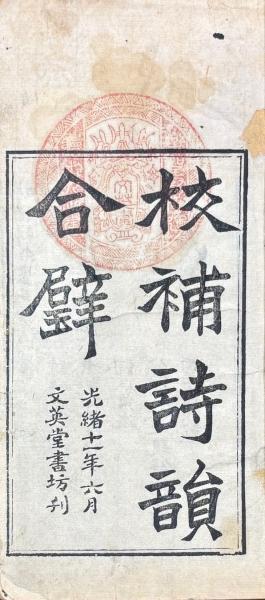 校補詩韻
合璧
光緒十一年六月
文英堂書坊刋